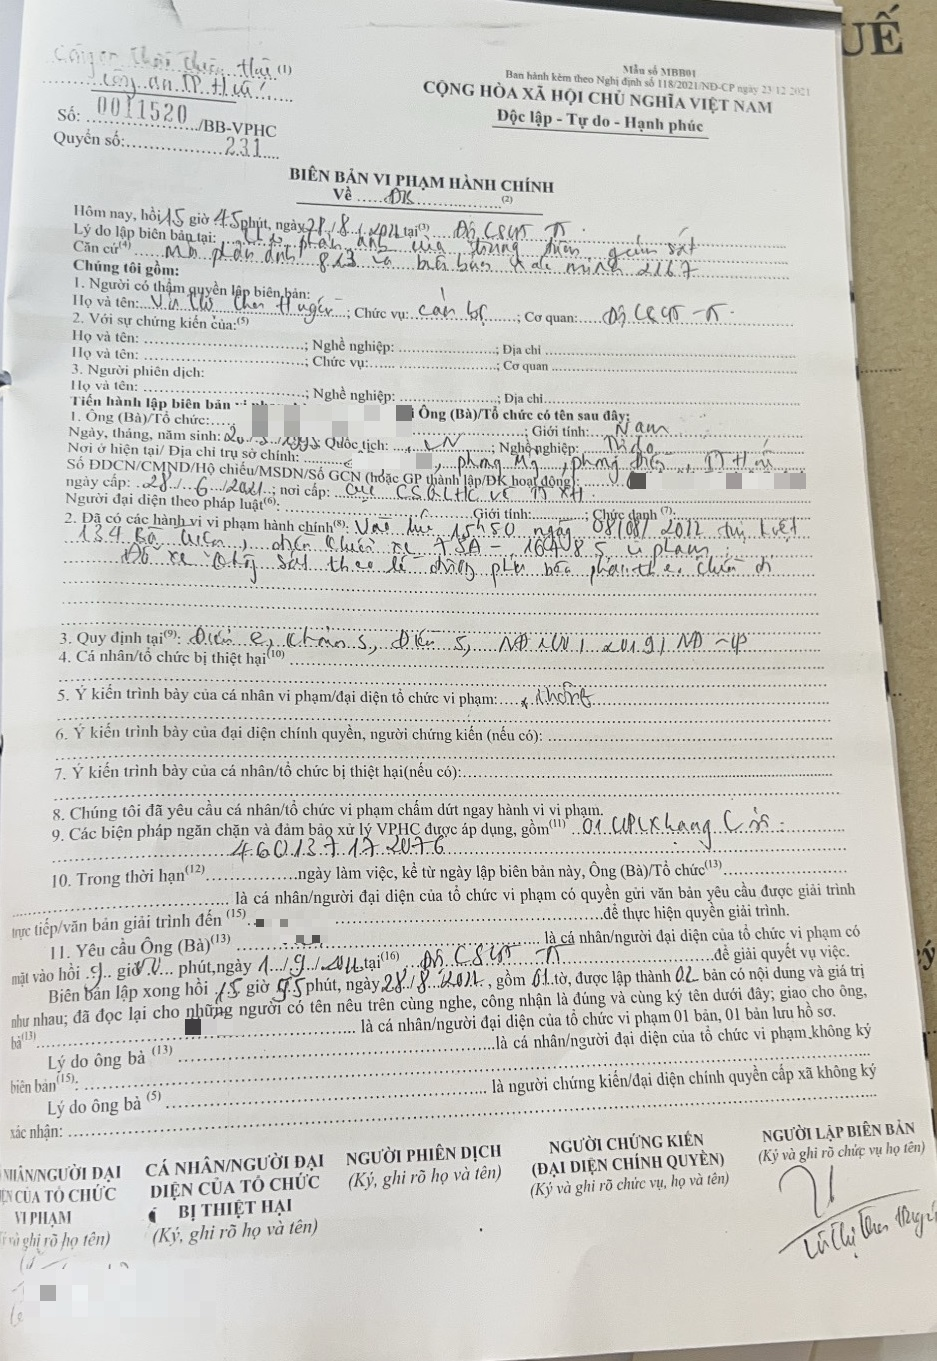 UẾ
Công an TP Huế
Mẫu số MBB01
Ban hành kèm theo Nghị định số 118/2021/NĐ-CP ngày 23-12-2021
CỘNG HÒA XÃ HỘI CHỦ NGHĨA VIỆT NAM
Độc lập - Tự do - Hạnh phúc
Số: 0011520/BB-VPHC
Quyển số: 231
BIÊN BẢN VI PHẠM HÀNH CHÍNH
Về (2)
Hôm nay, hồi 15 giờ 45 phút, ngày 28/8/ tại(3) Đội CSGT-TT
Lý do lập biên bản tại: phản ánh của trung tâm giám sát
Căn cứ(4) phản ánh 813 và biên bản xác minh 2167
Chúng tôi gồm:
1. Người có thẩm quyền lập biên bản:
Họ và tên: ; Chức vụ: cán bộ ; Cơ quan: Đội CSGT-TT
2. Với sự chứng kiến của:(5)
Họ và tên: ; Nghề nghiệp: ; Địa chỉ
Họ và tên: ; Chức vụ: ; Cơ quan
3. Người phiên dịch:
Họ và tên: ; Nghề nghiệp: ; Địa chỉ
Tiến hành lập biên bản Ông (Bà)/Tổ chức có tên sau đây:
1. Ông (Bà)/Tổ chức: ; Giới tính: Nam
Ngày, tháng, năm sinh: ; Quốc tịch: VN ; Nghề nghiệp: Tự do
Nơi ở hiện tại/ Địa chỉ trụ sở chính: , phong Mỹ, phong điền, TT Huế
Số ĐDCN/CMND/Hộ chiếu/MSDN/Số GCN (hoặc GP thành lập/ĐK hoạt động):
ngày cấp: 28/6/2021; nơi cấp: Cục CSQLHC về TTXH
Người đại diện theo pháp luật(6): Giới tính: ; Chức danh(7):
2. Đã có các hành vi vi phạm hành chính(8): Vào lúc 15h50 ngày 08/08/2022 tại kiệt
134 Bà Triệu, điều khiển xe 75A-164.85 vi phạm:
Đỗ xe không sát theo lề đường phía bên phải theo chiều đi
3. Quy định tại(9): Điểm e, khoản 5, Điều 5, NĐ 100/2019/NĐ-CP
4. Cá nhân/tổ chức bị thiệt hại(10)
5. Ý kiến trình bày của cá nhân vi phạm/đại diện tổ chức vi phạm: không
6. Ý kiến trình bày của đại diện chính quyền, người chứng kiến (nếu có):
7. Ý kiến trình bày của cá nhân/tổ chức bị thiệt hại(nếu có):
8. Chúng tôi đã yêu cầu cá nhân/tổ chức vi phạm chấm dứt ngay hành vi vi phạm.
9. Các biện pháp ngăn chặn và đảm bảo xử lý VPHC được áp dụng, gồm(11) 01 GPLX hạng C số:
460137172076
10. Trong thời hạn(12) ngày làm việc, kể từ ngày lập biên bản này, Ông (Bà)/Tổ chức(13)
là cá nhân/người đại diện của tổ chức vi phạm có quyền gửi văn bản yêu cầu được giải trình
trực tiếp/văn bản giải trình đến (15) để thực hiện quyền giải trình.
11. Yêu cầu Ông (Bà)(13) là cá nhân/người đại diện của tổ chức vi phạm có
mặt vào hồi 9 giờ phút, ngày 1/9/ tại(16) Đội CSGT-TT để giải quyết vụ việc.
Biên bản lập xong hồi 15 giờ 55 phút, ngày 28/8/2022, gồm 01 tờ, được lập thành 02 bản có nội dung và giá trị
như nhau; đã đọc lại cho những người có tên nêu trên cùng nghe, công nhận là đúng và cùng ký tên dưới đây; giao cho ông,
bà(13) là cá nhân/người đại diện của tổ chức vi phạm 01 bản, 01 bản lưu hồ sơ.
Lý do ông bà (13) là cá nhân/người đại diện của tổ chức vi phạm không ký
biên bản(15):
Lý do ông bà (5) là người chứng kiến/đại diện chính quyền cấp xã không ký
xác nhận:
NHÂN/NGƯỜI ĐẠI
DIỆN CỦA TỔ CHỨC
VI PHẠM
ghi rõ họ tên)
CÁ NHÂN/NGƯỜI ĐẠI
DIỆN CỦA TỔ CHỨC
BỊ THIỆT HẠI
(Ký, ghi rõ họ và tên)
NGƯỜI PHIÊN DỊCH
(Ký, ghi rõ họ và tên)
NGƯỜI CHỨNG KIẾN
(ĐẠI DIỆN CHÍNH QUYỀN)
(Ký và ghi rõ chức vụ, họ và tên)
NGƯỜI LẬP BIÊN BẢN
(Ký và ghi rõ chức vụ họ tên)